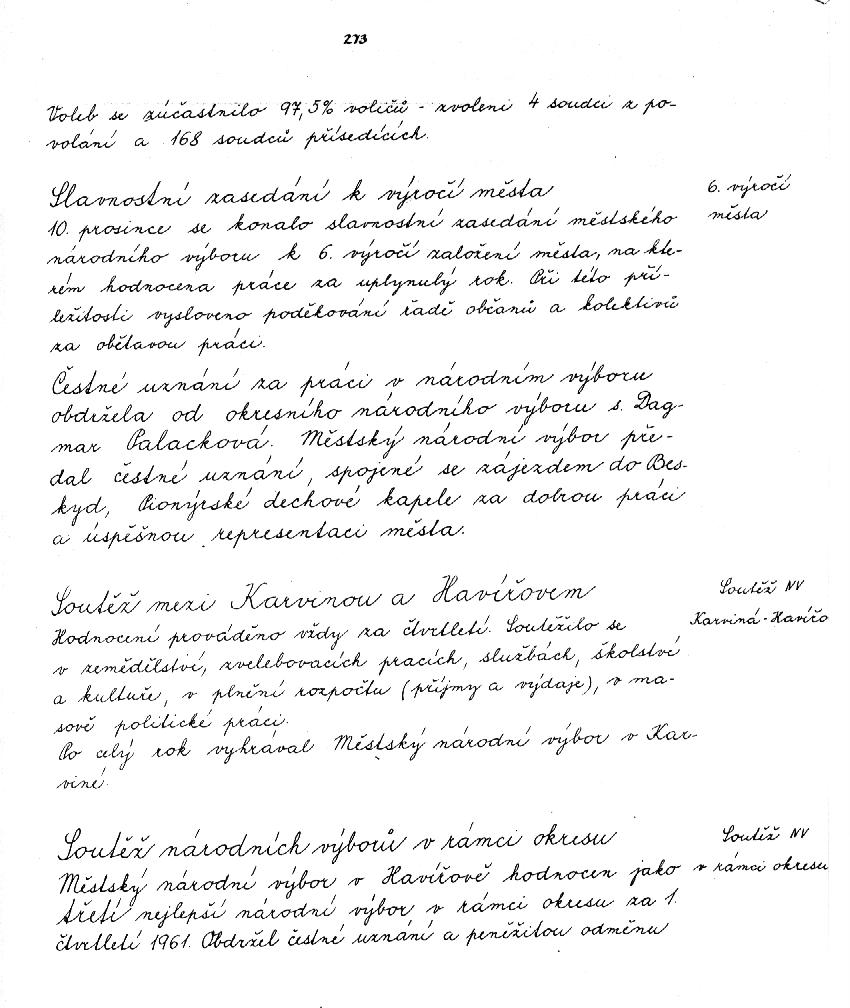 273
Voleb se zúčastnilo 97,5% voličů - zvoleni 4 soudci z po-
volání a 168 soudců přísedících.
Slavnostní zasedání k výročí města
6. výročí
města
10. prosince se konalo slavnostní zasedání městského
národního výboru k 6. výročí založení města, na kte-
rém hodnocena práce za uplynulý rok. Při této pří-
ležitosti vysloveno poděkování řadě občanů a kolektivů
za obětavou práci.
Čestné uznání za práci v národním výboru
obdržela od okresního národního výboru s. Dag-
mar Palacková. Městský národní výbor pře-
dal čestné uznání, spojené se zájezdem do Bes-
kyd, Pionýrské dechové kapele za dobrou práci
a úspěšnou representaci města.
Soutěž mezi Karvinou a Havířovem
Soutěž NV
Karviná - Havířo
Hodnocení prováděno vždy za čtvrtletí. Soutěžilo se
v zemědělství, zvelebovacích pracích, službách, školství
a kultuře, v plnění rozpočtu (příjmy a výdaje), v ma-
sově politické práci.
Po celý rok vyhrával Městský národní výbor v Kar-
viné.
Soutěž národních výborů v rámci okresu
Soutěž NV
v rámci okresu
Městský národní výbor v Havířově hodnocen jako
třetí nejlepší národní výbor v rámci okresu za 1.
čtvrtletí 1961. Obdržel čestné uznání a peněžitou odměnu